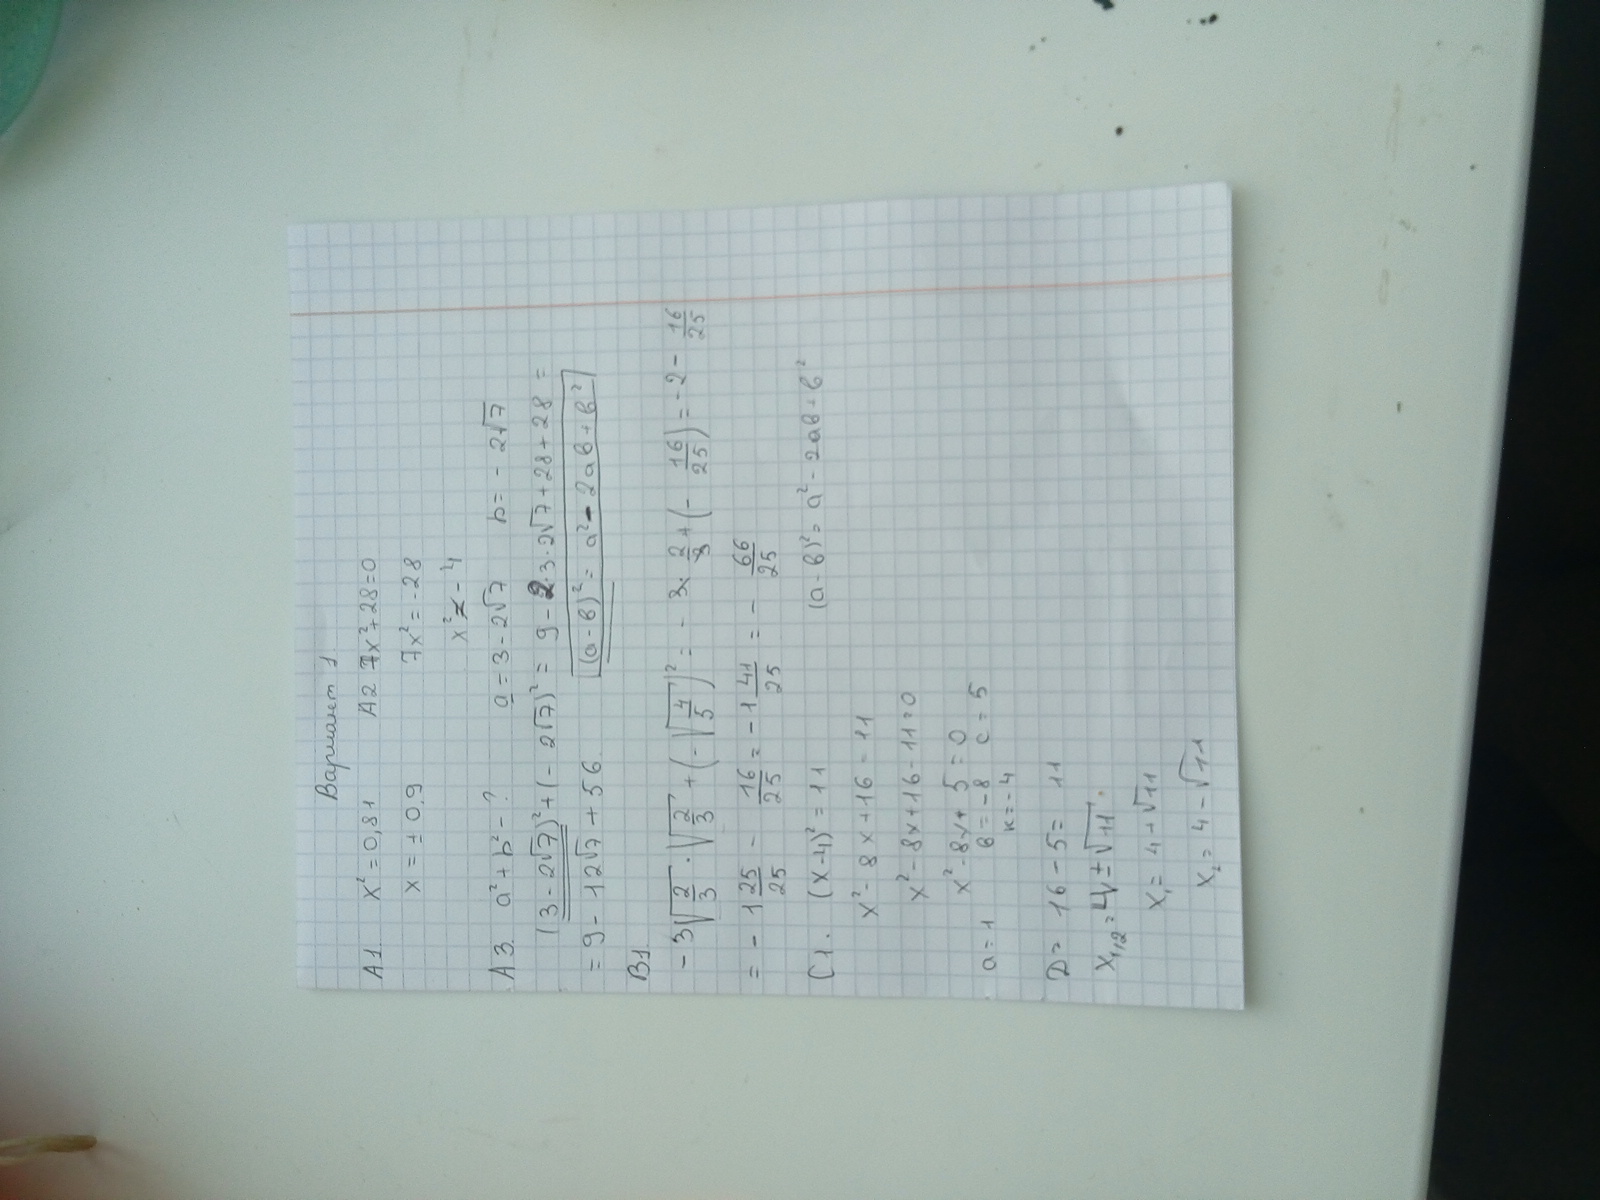 Вариант 1.
A1 x² = 0,81 A2 7x² + 28 = 0
x = ± 0,9 7x² = -28
x² ≠ - 4
A3. a² + b² - ? a = 3 - 2√7 b = - 2√7
(3 - 2√7)² + (- 2√7)² = 9 - 2·3·2√7 + 28 + 28 =
= 9 - 12√7 + 56. (a - в)² = a² - 2aв + в²
B1.
-3√(2/3) · √(2/3) + (-√(4/5))² = - 3 · 2/3 + (- 16/25) = -2 - 16/25
= - 1 25/25 - 16/25 = - 1 41/25 = - 66/25
C1. (x-4)² = 11 (a - в)² = a² - 2aв + в²
x² - 8x + 16 = 11
x² - 8x + 16 - 11 = 0
x² - 8x + 5 = 0
a = 1 в = -8 c = 5
к = -4
D = 16 - 5 = 11
x₁,₂ = 4 ± √11.
x₁ = 4 + √11
x₂ = 4 - √11